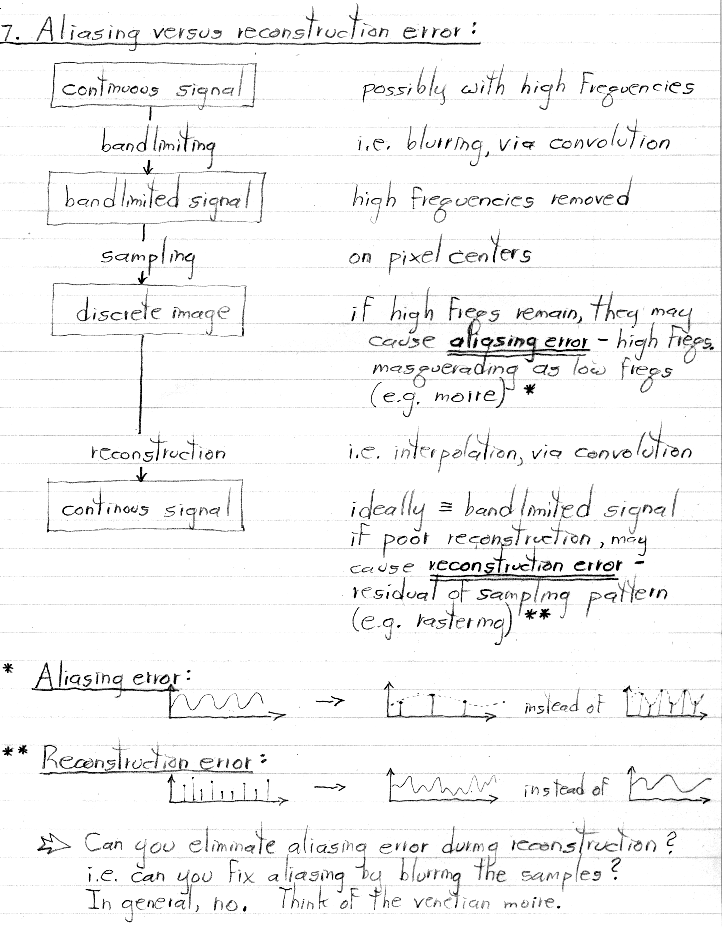 7. Aliasing versus reconstruction error:
continuous signal
possibly with high frequencies
bandlimiting
i.e. blurring, via convolution
bandlimited signal
high frequencies removed
sampling
on pixel centers
discrete image
if high freqs remain, they may
cause aliasing error - high freqs.
masquerading as low freqs
(e.g. moire) *
reconstruction
i.e. interpolation, via convolution
continous signal
ideally ≡ bandlimited signal
if poor reconstruction, may
cause reconstruction error -
residual of sampling pattern
(e.g. rastering) **
* Aliasing error:
→ instead of
** Reconstruction error:
→ instead of
⇒ Can you eliminate aliasing error during reconstruction?
i.e. can you fix aliasing by blurring the samples?
In general, no. Think of the venetian moire.